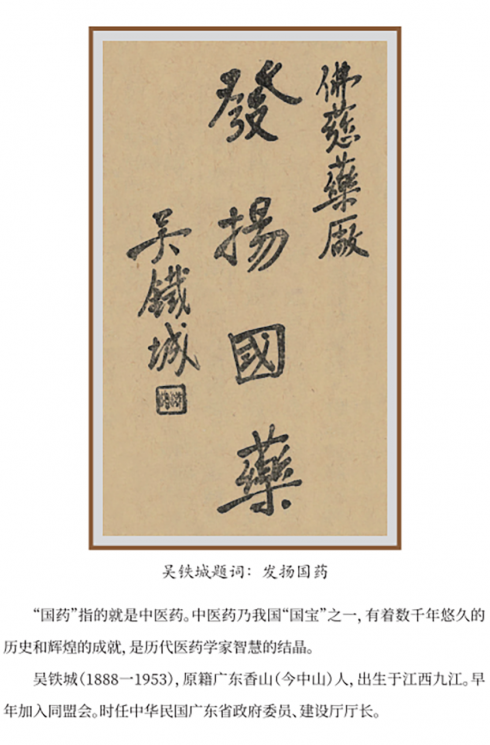 佛慈藥廠
發揚國藥
吴鐵城
吴铁城题词：发扬国药
“国药”指的就是中医药。中医药乃我国“国宝”之一，有着数千年悠久的
历史和辉煌的成就，是历代医药学家智慧的结晶。
吴铁城（1888一1953），原籍广东香山（今中山）人，出生于江西九江。早
年加入同盟会。时任中华民国广东省政府委员、建设厅厅长。